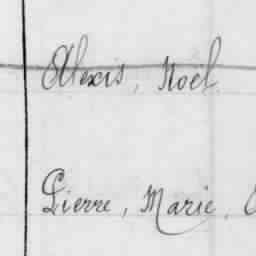 Alexis, Noël
Pierre, Marie,